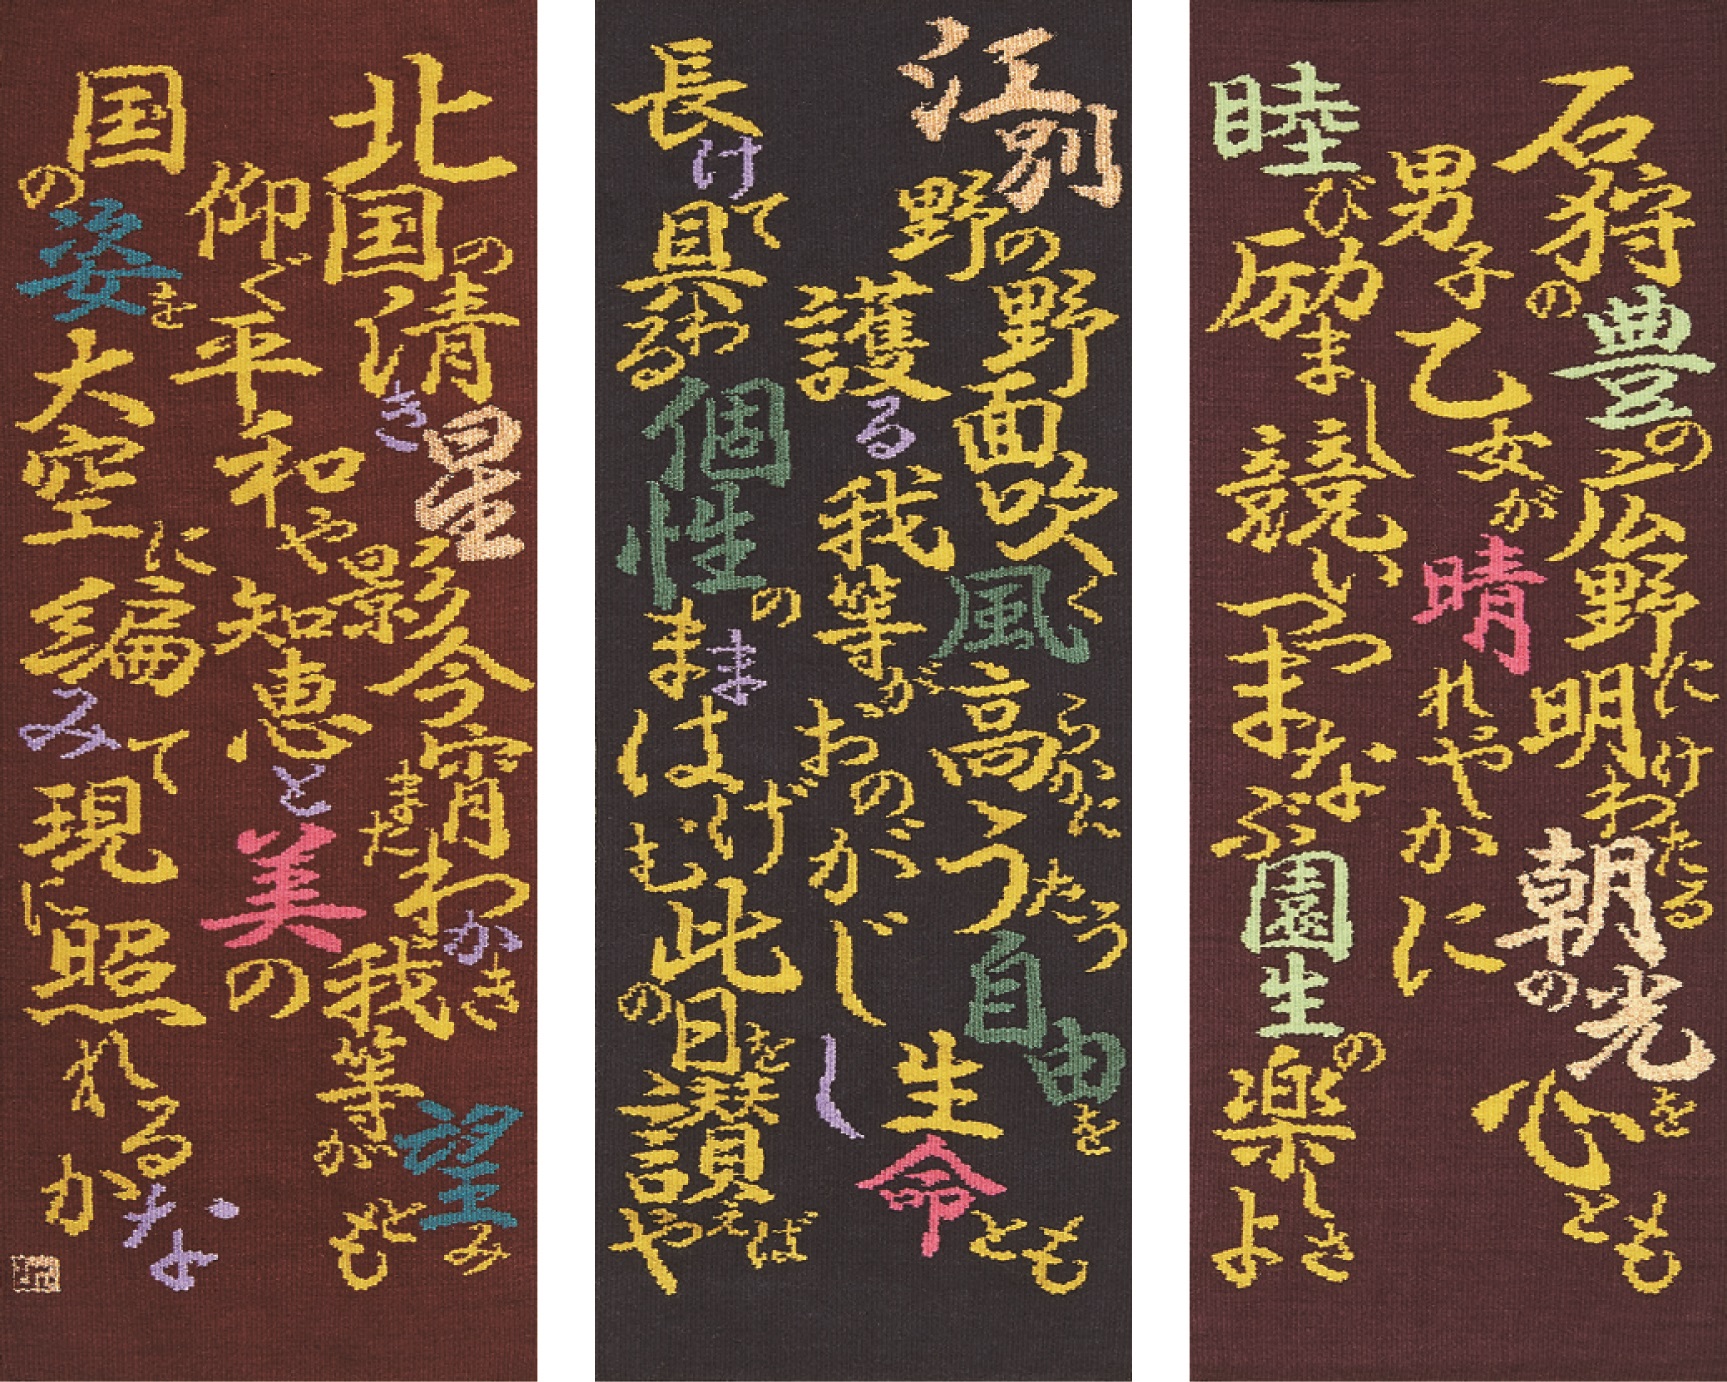 石狩の豊の広野に明けわたる朝の光を心とも
男子乙女が晴れやかに
睦び励まし競いつつまなぶ園生の楽しさよ
江別野の野面吹く風高らかにうたう自由を生命とも
護る我等がおのがじし
長けて具わる個性のままはげむ此の日を讃えばや
北国の清き星影今宵またわかき我等が望みとも
仰ぐ平和や知恵と美の
国の姿を大空に編みて現に照れるかな